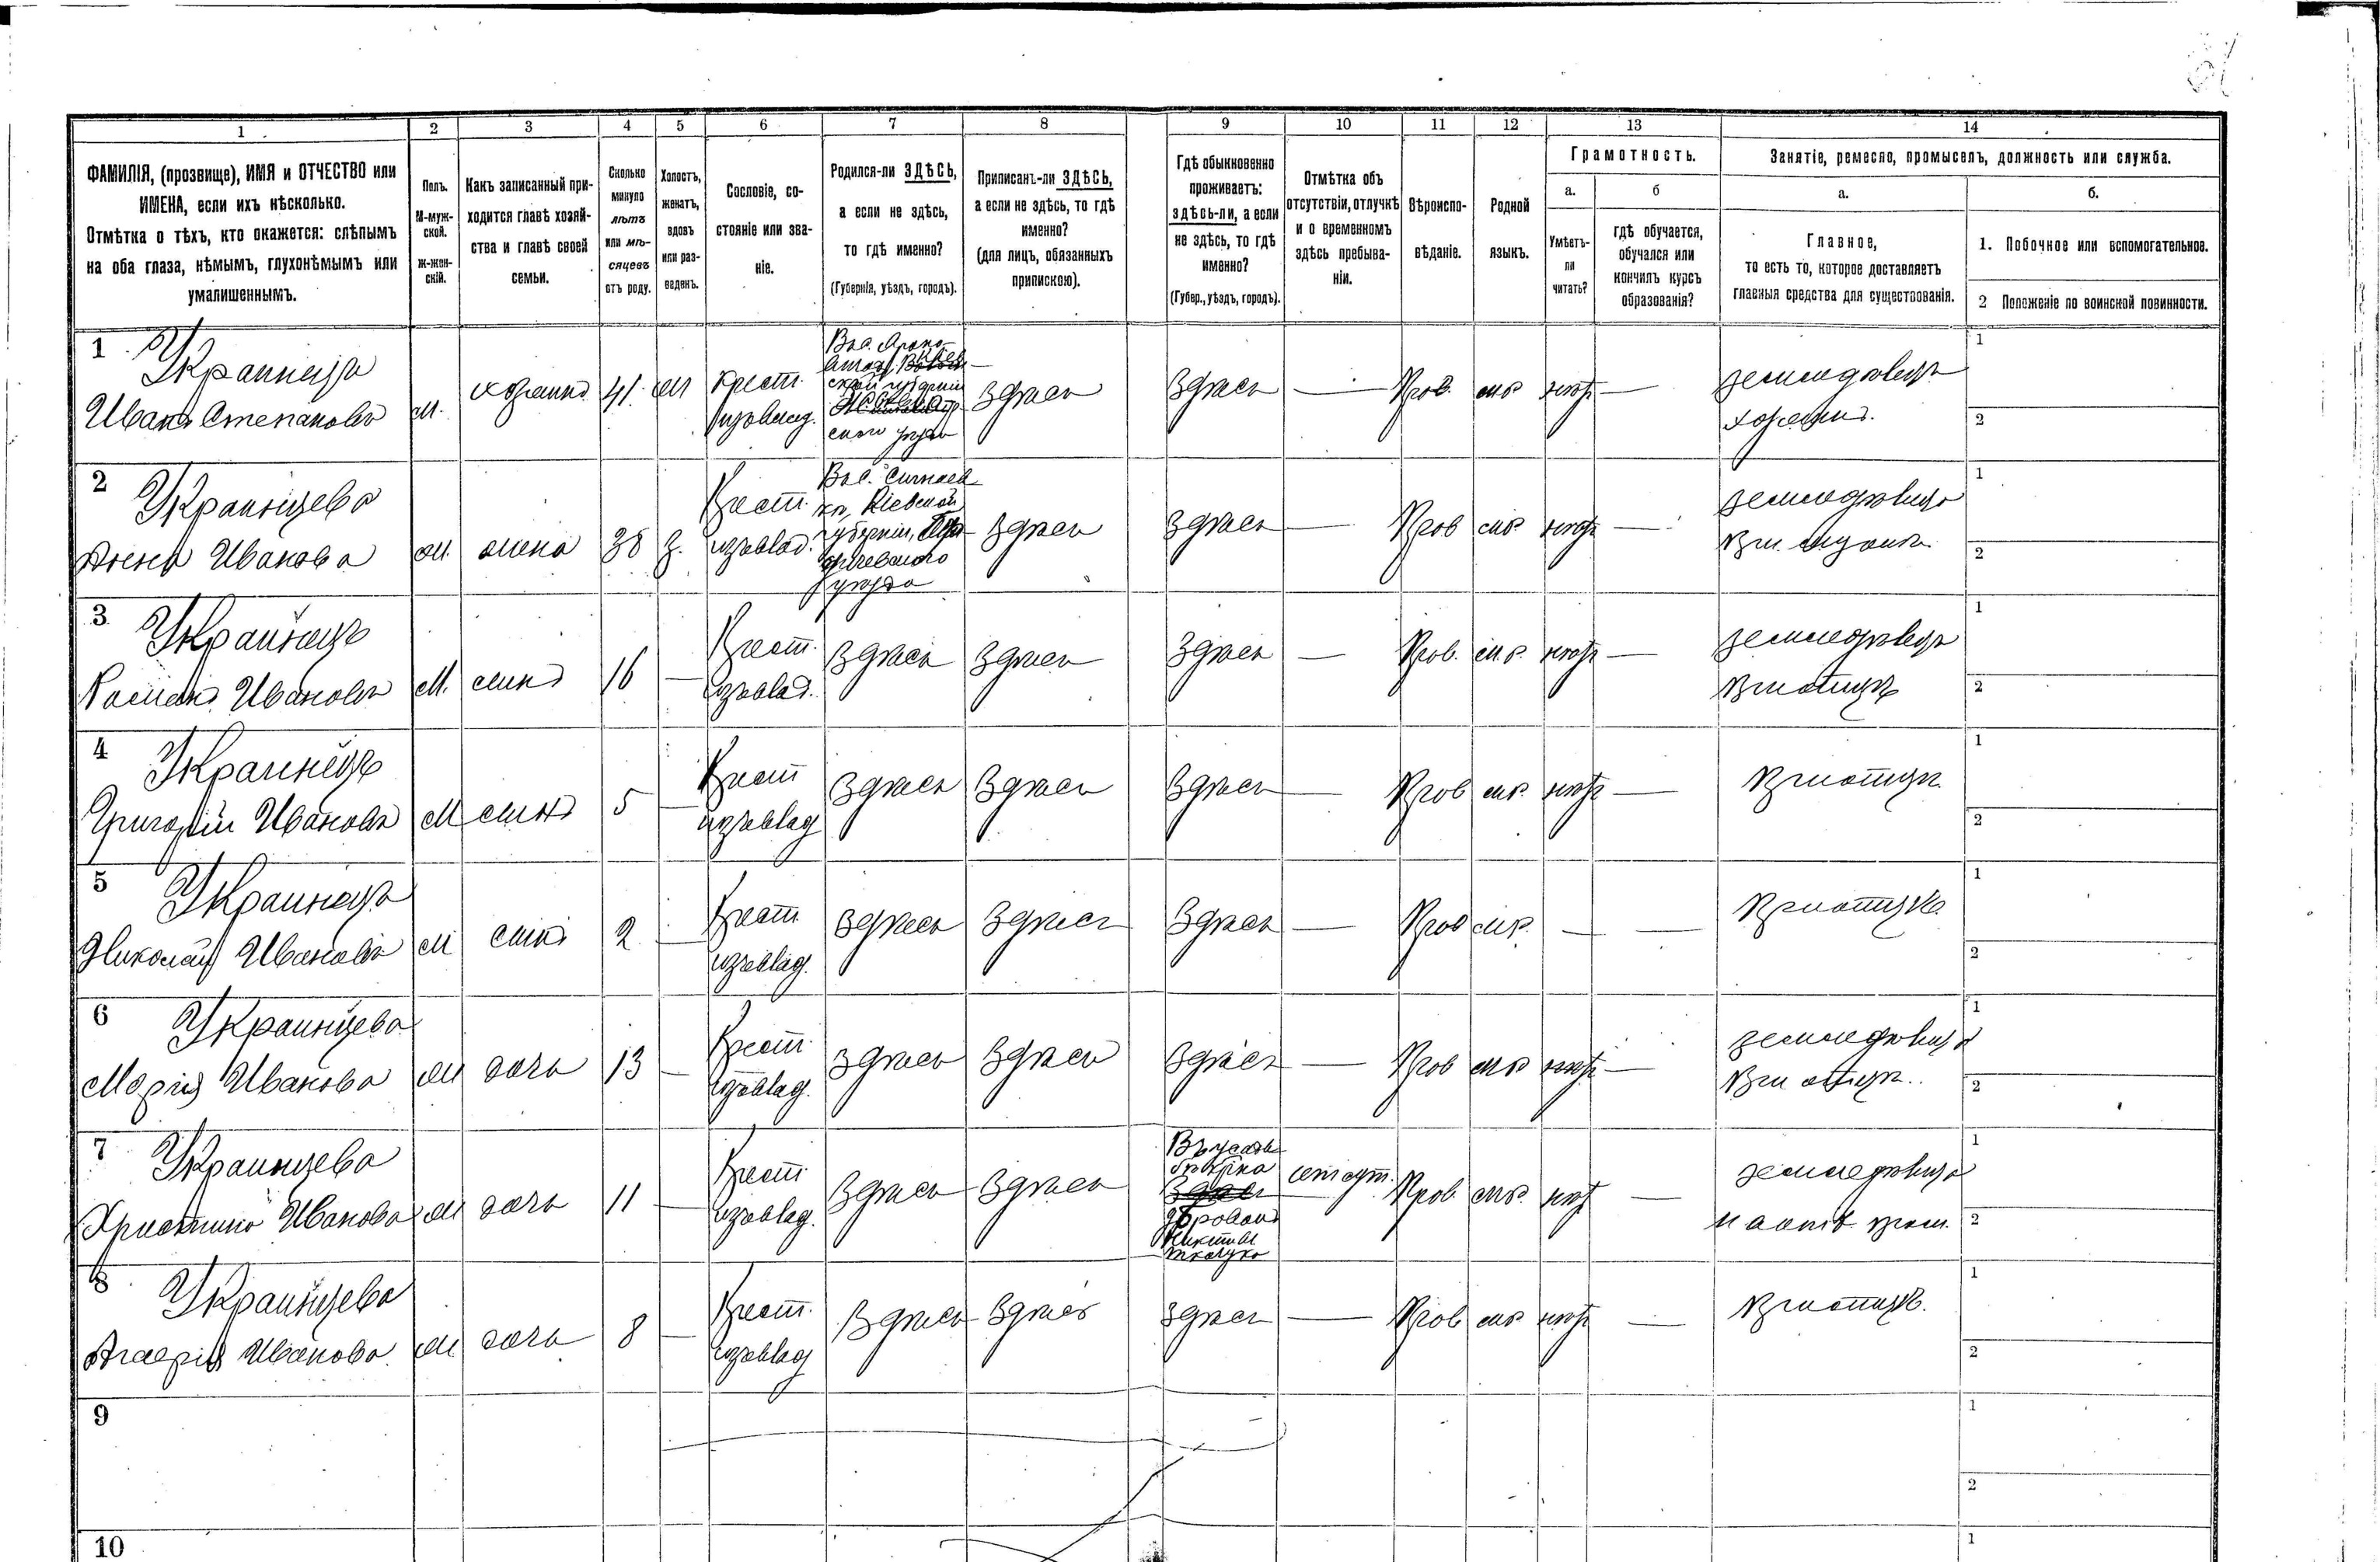 1 2 3 4 5 6 7 8 9 10 11 12 13 14
ФАМИЛІЯ, (прозвище), ИМЯ и ОТЧЕСТВО или
ИМЕНА, если ихъ нѣсколько.
Отмѣтка о тѣхъ, кто окажется: слѣпымъ
на оба глаза, нѣмымъ, глухонѣмымъ или
умалишеннымъ.
Полъ.
М-муж-
ской.
Ж-жен-
скій.
Какъ записанный при-
ходится главѣ хозяй-
ства и главѣ своей
семьи.
Сколько
минуло
лѣтъ
или мѣ-
сяцевъ
отъ роду.
Холостъ,
женатъ,
вдовъ
или раз-
веденъ.
Сословіе, со-
стояніе или зва-
ніе.
Родился-ли ЗДѢСЬ,
а если не здѣсь,
то гдѣ именно?
(Губернія, уѣздъ, городъ).
Приписанъ-ли ЗДѢСЬ,
а если не здѣсь, то гдѣ
именно?
(для лицъ, обязанныхъ
припискою).
Гдѣ обыкновенно
проживаетъ:
здѣсь-ли, а если
не здѣсь, то гдѣ
именно?
(Губер., уѣздъ, городъ).
Отмѣтка объ
отсутствіи, отлучкѣ
и о временномъ
здѣсь пребыва-
ніи.
Вѣроиспо-
вѣданіе.
Родной
языкъ.
Грамотность.
а.
Умѣетъ-
ли
читать?
б
гдѣ обучается,
обучался или
кончилъ курсъ
образованія?
Занятіе, ремесло, промыселъ, должность или служба.
а.
Главное,
то есть то, которое доставляетъ
главныя средства для существованія.
б.
1. Побочное или вспомогательное.
2 Положеніе по воинской повинности.
1 Украинецъ
Иванъ Степановъ
м.
хозяинъ
41
Крест.
изъ влад.
губерніи
уѣзда
здѣсь
здѣсь
—
Прав.
мр.
нѣтъ
—
земледѣлецъ
хозяинъ.
1
2
2 Украинцева
Иванова
ж.
жена
38
з.
Крест.
изъ влад.
Кіевской
губерніи,
уѣзда
здѣсь
здѣсь
—
Прав
мр.
нѣтъ
—
земледѣлица
при мужѣ
1
2
3 Украинецъ
Романъ Ивановъ
М.
сынъ
16
—
Крест.
изъ влад.
здѣсь
здѣсь
здѣсь
—
Прав.
м.р.
нѣтъ
—
земледѣлецъ
при отцѣ
1
2
4 Украинецъ
Григорій Ивановъ
М
сынъ
5
—
Крест
изъ влад
здѣсь
здѣсь
здѣсь
—
Прав
мр.
нѣтъ
—
при отцѣ
1
2
5 Украинецъ
Николай Ивановъ
М
сынъ
2
—
Крест
изъ влад.
здѣсь
здѣсь
здѣсь
—
Прав
мр.
—
—
при отцѣ.
1
2
6 Украинцева
Марія Иванова
ж
дочь
13
—
Крест.
изъ влад.
здѣсь
здѣсь
здѣсь
—
Прав
мр
нѣтъ
—
земледѣлица
при отцѣ.
1
2
7 Украинцева
Христина Иванова
ж
дочь
11
—
Крест.
изъ влад.
здѣсь
здѣсь
Никиты
Ткачука
Прав
мр.
нѣт
—
земледѣлица
1
2
8 Украинцева
Иванова
ж
дочь
8
—
Крест.
изъ влад
здѣсь
здѣсь
здѣсь
—
Прав
мр
нѣтъ
—
при отцѣ.
1
2
9
1
2
10
1